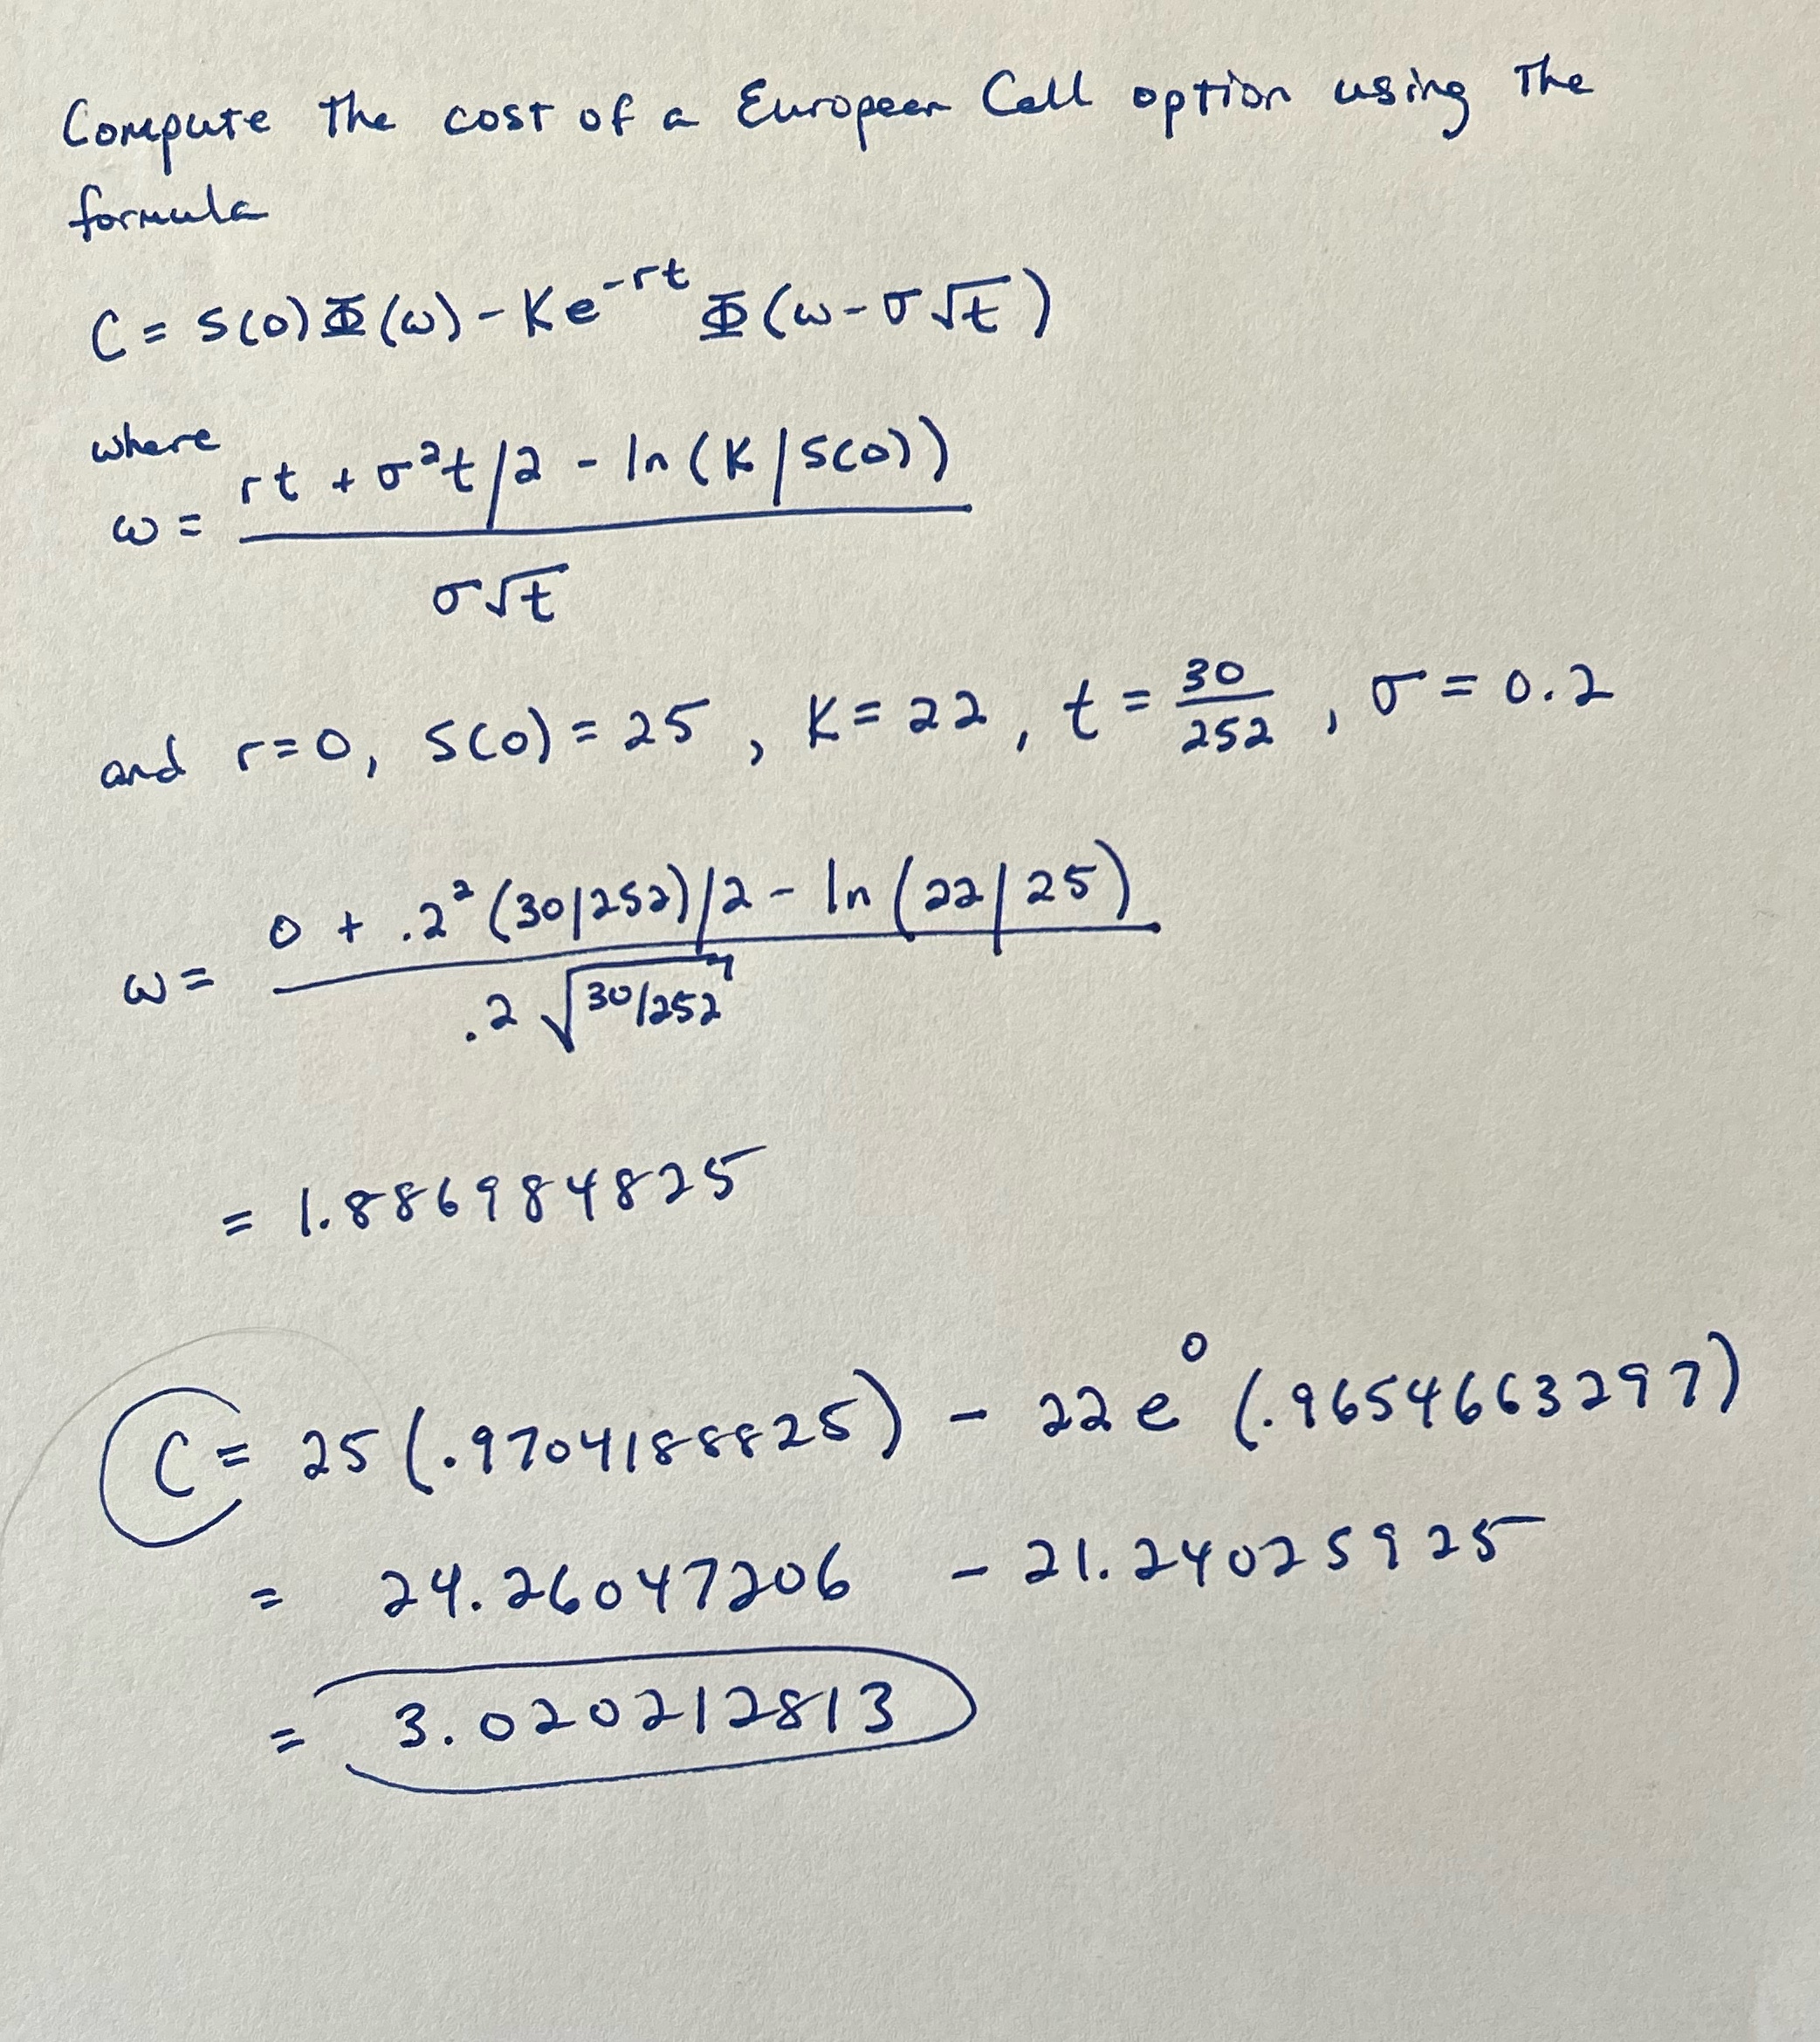 Compute the cost of a European Call option using the
formula
C = S(0)Φ(ω) - Ke^{-rt} Φ(ω-σ√t)
where
ω = (rt + σ²t/2 - ln(K/S(0))) / (σ√t)
and r=0, S(0) = 25, K = 22, t = 30/252, σ = 0.2
ω = (0 + .2²(30/252)/2 - ln(22/25)) / (.2√(30/252))
= 1.886984825
C = 25(.9704188825) - 22e⁰(.9654663297)
= 24.26047206 - 21.24025925
= 3.020212813